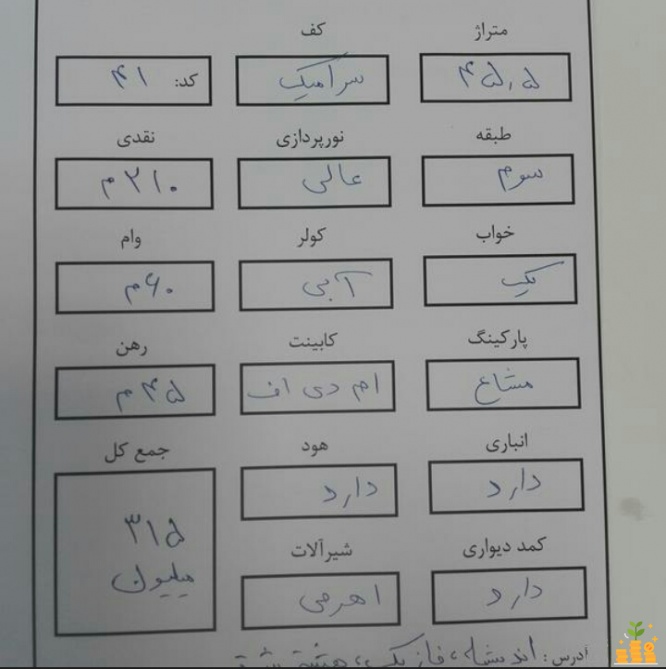 متراژ کف
۴۵٫۵ سرامیک کد: ۴۱
طبقه نورپردازی نقدی
سوم عالی ۲۱۰ م
خواب کولر وام
یک آبی ۶۰ م
پارکینگ کابینت رهن
مشاع ام دی اف ۴۵ م
انباری هود جمع کل
دارد دارد ۳۱۵ میلیون
کمد دیواری شیرآلات
دارد اهرمی
آدرس: اندیشه، فاز یک،